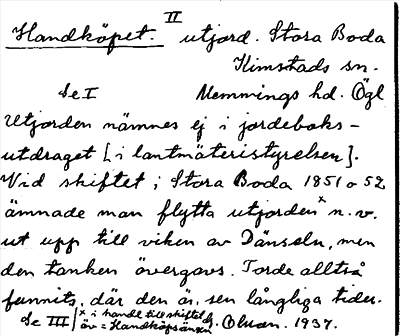 II
Handköpet. utjord. Stora Boda
Kimstads sn.
Se I Memmings hd. Ögl
Utjorden nämnes ej i jordeboks-
utdraget [i lantmäteristyrelsen].
Vid skiftet i Stora Boda 1851 o 52
ämnade man flytta utjorden x n.v.
ut upp till viken av Dänseln, men
den tanken övergavs. Torde alltså
funnits, där den är, sen långliga tider.
Se III x i handl. till skiftet
äv = Handköpsängen G. Olson. 1937.